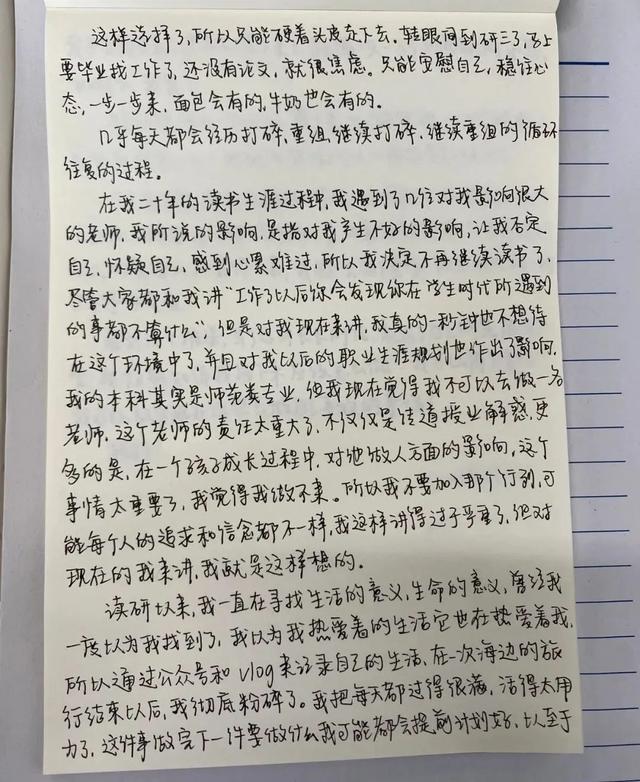 这样选择了,所以只能硬着头皮走下去。转眼间到研三了,马上
要毕业找工作了,还没有论文,就很焦虑。只能安慰自己,稳住心
态,一步一步来,面包会有的,牛奶也会有的。
几乎每天都会经历打碎,重组,继续打碎,继续重组的循环
往复的过程。
在我二十年的读书生涯过程中,我遇到了几位对我影响很大
的老师,我所说的影响,是指对我产生不好的影响,让我否定
自己,怀疑自己,感到心累难过,所以我决定不再继续读书了,
尽管大家都和我讲“工作了以后你会发现你在学生时代所遇到
的事都不算什么”,但是对我现在来讲,我真的一秒钟也不想待
在这个环境中了,并且对我以后的职业生涯规划也作出了影响,
我的本科其实是师范类专业,但我现在觉得我不可以去做一名
老师,这个老师的责任太重大了,不仅仅是传道授业解惑,更
多的是,在一个孩子成长过程中,对他做人方面的影响,这个
事情太重要了,我觉得我做不来。所以我不要加入那个行列,可
能每个人的追求和信念都不一样,我这样讲得过于严重了,但对
现在的我来讲,我就是这样想的。
读研以来,我一直在寻找生活的意义,生命的意义,曾经我
一度以为我找到了,我以为我热爱着的生活它也在热爱着我,
所以通过公众号和vlog来记录自己的生活,在一次海边的旅
行结束以后,我彻底粉碎了。我把每天都过得很满,活得太用
力了,这件事做完下一件要做什么我可能都会提前计划好,以至于